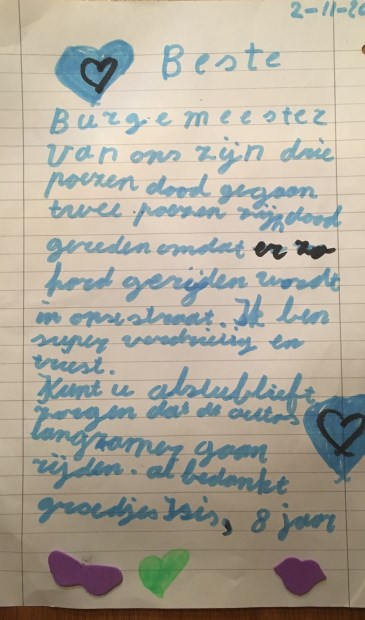 2-11-20
Beste
Burgemeester
Van ons zijn drie
poezen dood gegaan
twee poezen zijn dood
gereden omdat er zo
hard gerijden wordt
in onse straat. Ik ben
super verdrietig en
triest.
Kunt u alstublieft
zorgen dat de autos
langzamer gaan
rijden. al bedankt
groedjes Isis, 8 jaar